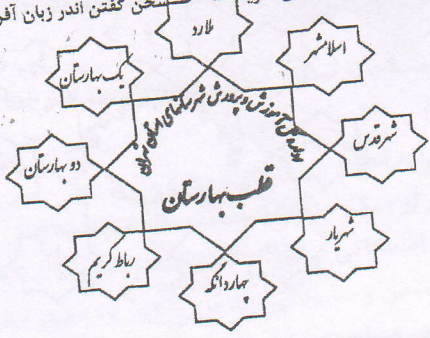 سخن گفتن اندر زبان آفر
ملارد
اسلامشهر
شهرقدس
شهریار
چهاردانگه
رباط کریم
دو بهارستان
یک بهارستان
آموزش و پرورش شهرستانهای استان تهران
قلب بهارستان